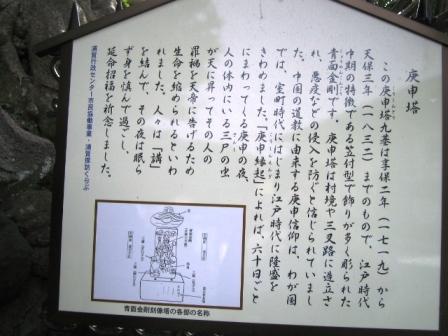 庚申塔
この庚申塔九基は享保二年(一七一九)から
天保三年(一八三二)までのもので、江戸時代
中期の特徴である笠付型で飾りが多く彫られた
青面金剛です。庚申塔は村境や三叉路に造立さ
れ、悪疫などの侵入を防ぐと信じられていまし
た。中国の道教に由来する庚申信仰は、わが国
では、室町時代にはじまり江戸時代に隆盛を
きわめました。「庚申縁起」によれば、六十日ごと
にまわってくる庚申の夜、
人の体内にいる三尸の虫
が天に昇ってその人の
罪禍を天帝に告げるため
生命を縮められるといわ
れました。人々は「講」
を結んで、その夜は眠ら
ず身を慎んで過ごし、
延命招福を祈念しました。
浦賀行政センター市民協働事業・浦賀探訪くらぶ
青面金剛刻像塔の各部の名称